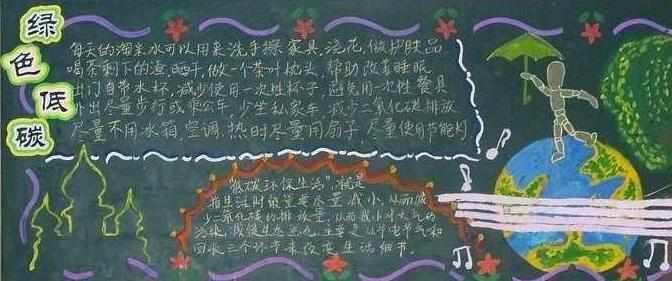 绿色低碳
每天的淘米水可以用来洗手擦家具,浇花,做护肤品
喝茶剩下的渣,晒干,做一个茶叶枕头,帮助改善睡眠
出门自带水杯,减少使用一次性杯子,避免用一次性餐具
外出尽量步行或乘公车,少坐私家车,减少二氧化碳排放
尽量不用冰箱,空调,热时尽量用扇子,尽量使用节能灯
"低碳环保生活",就是
指生活时能量要尽量减小,从而减
少二氧化碳的排放量,从而减小对大气的
污染,减缓生态恶化,主要是从节电节气和
回收三个环节来改变生活细节。